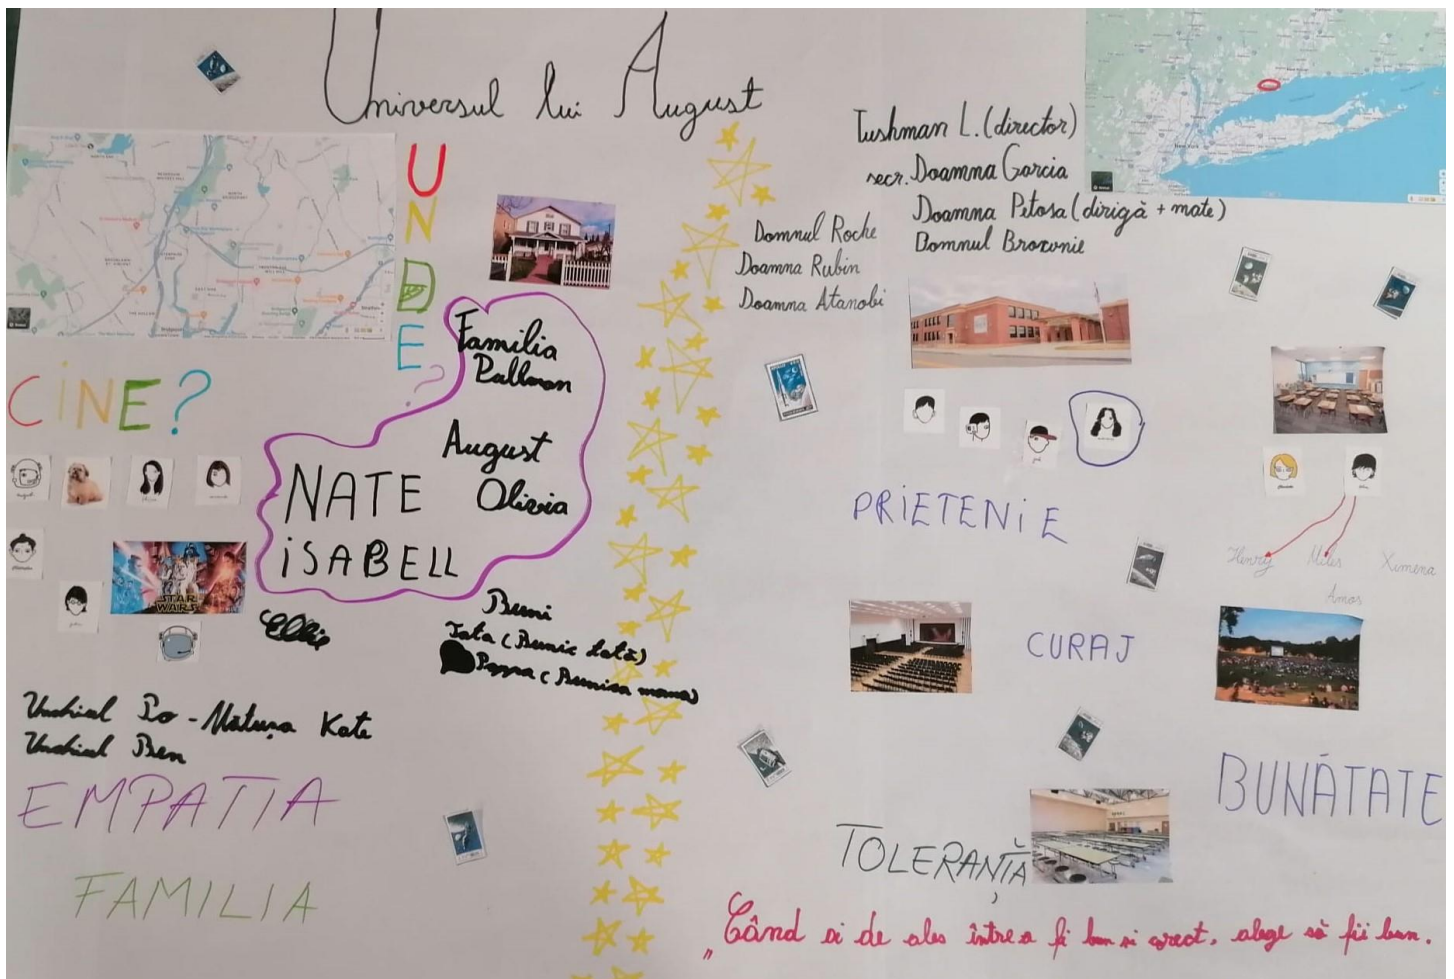 Universul lui August
UNDE?
CINE?
Familia
Pullman
August
Olivia
NATE
ISABELL
STAR
WARS
Buni
Tata (Bunic tată)
Poppa (Bunica mama)
Unchiul Po - Mătușa Kate
Unchiul Ben
EMPATIA
FAMILIA
Tushman L. (director)
secr. Doamna Garcia
Doamna Petosa (dirigă + mate)
Domnul Brownie
Domnul Roche
Doamna Rubin
Doamna Atanabi
PRIETENIE
Henry Miles Ximena
Amos
CURAJ
BUNĂTATE
TOLERANȚĂ
„Când ai de ales între a fi bun și corect, alege să fii bun.